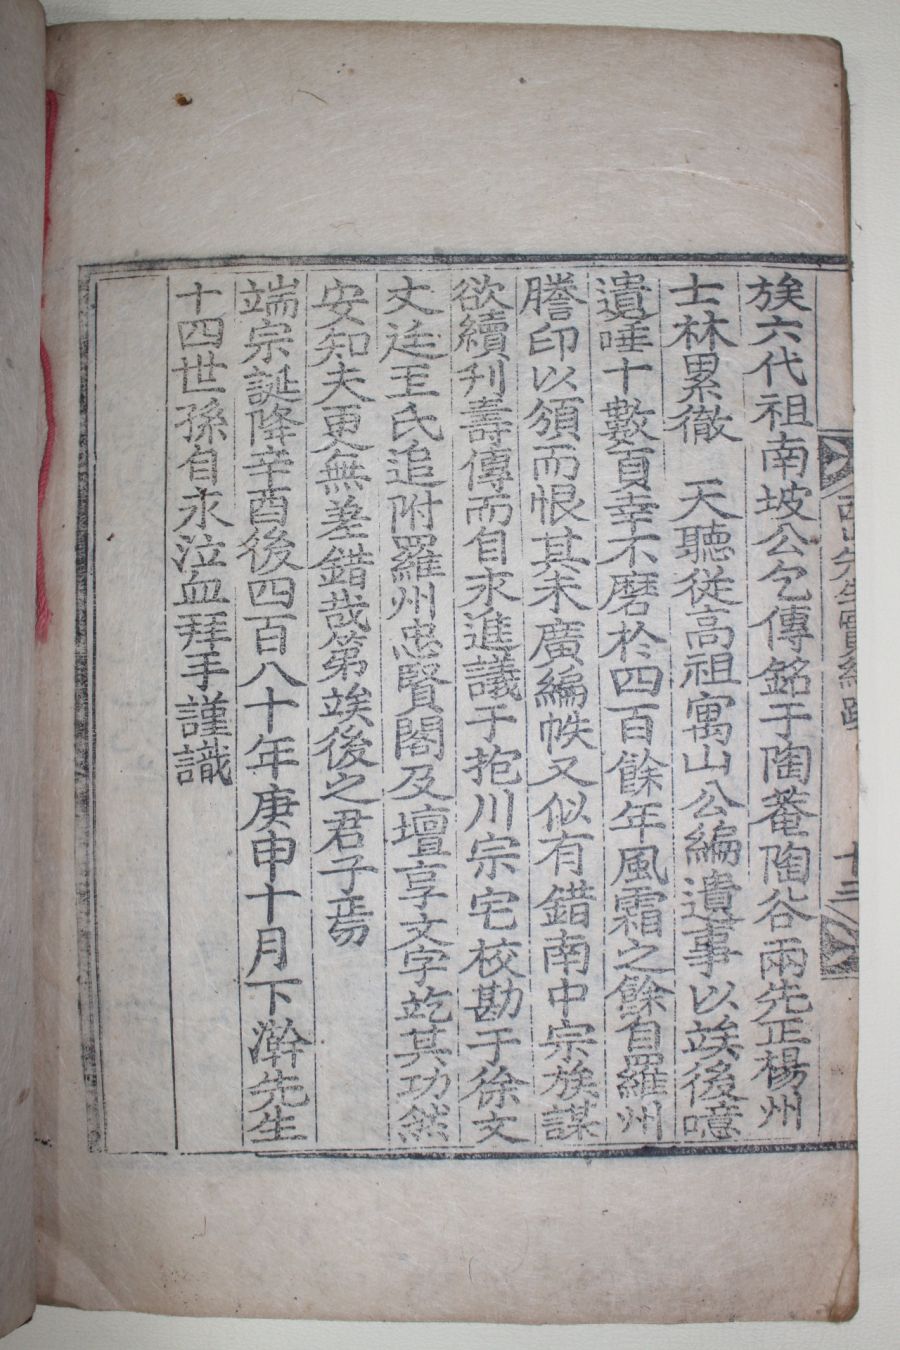 族六代祖南坡公乞傳銘于陶菴陶谷兩先正楊州
士林累徹　天聽從高祖寓山公編遺事以竢後噫
遺唾十數頁幸不磨於四百餘年風霜之餘自羅州
謄印以頒而恨其未廣編帙又似有錯南中宗族謀
欲續刋壽傳而自永進議于抱川宗宅校勘于徐文
文廷王氏追附羅州忠賢閣及壇享文字訖其功然
安知夫更無差錯哉第竢後之君子焉
端宗誕降辛酉後四百八十年庚申十月下澣先生
十四世孫自永泣血拜手謹識
先生實紀跋
十三